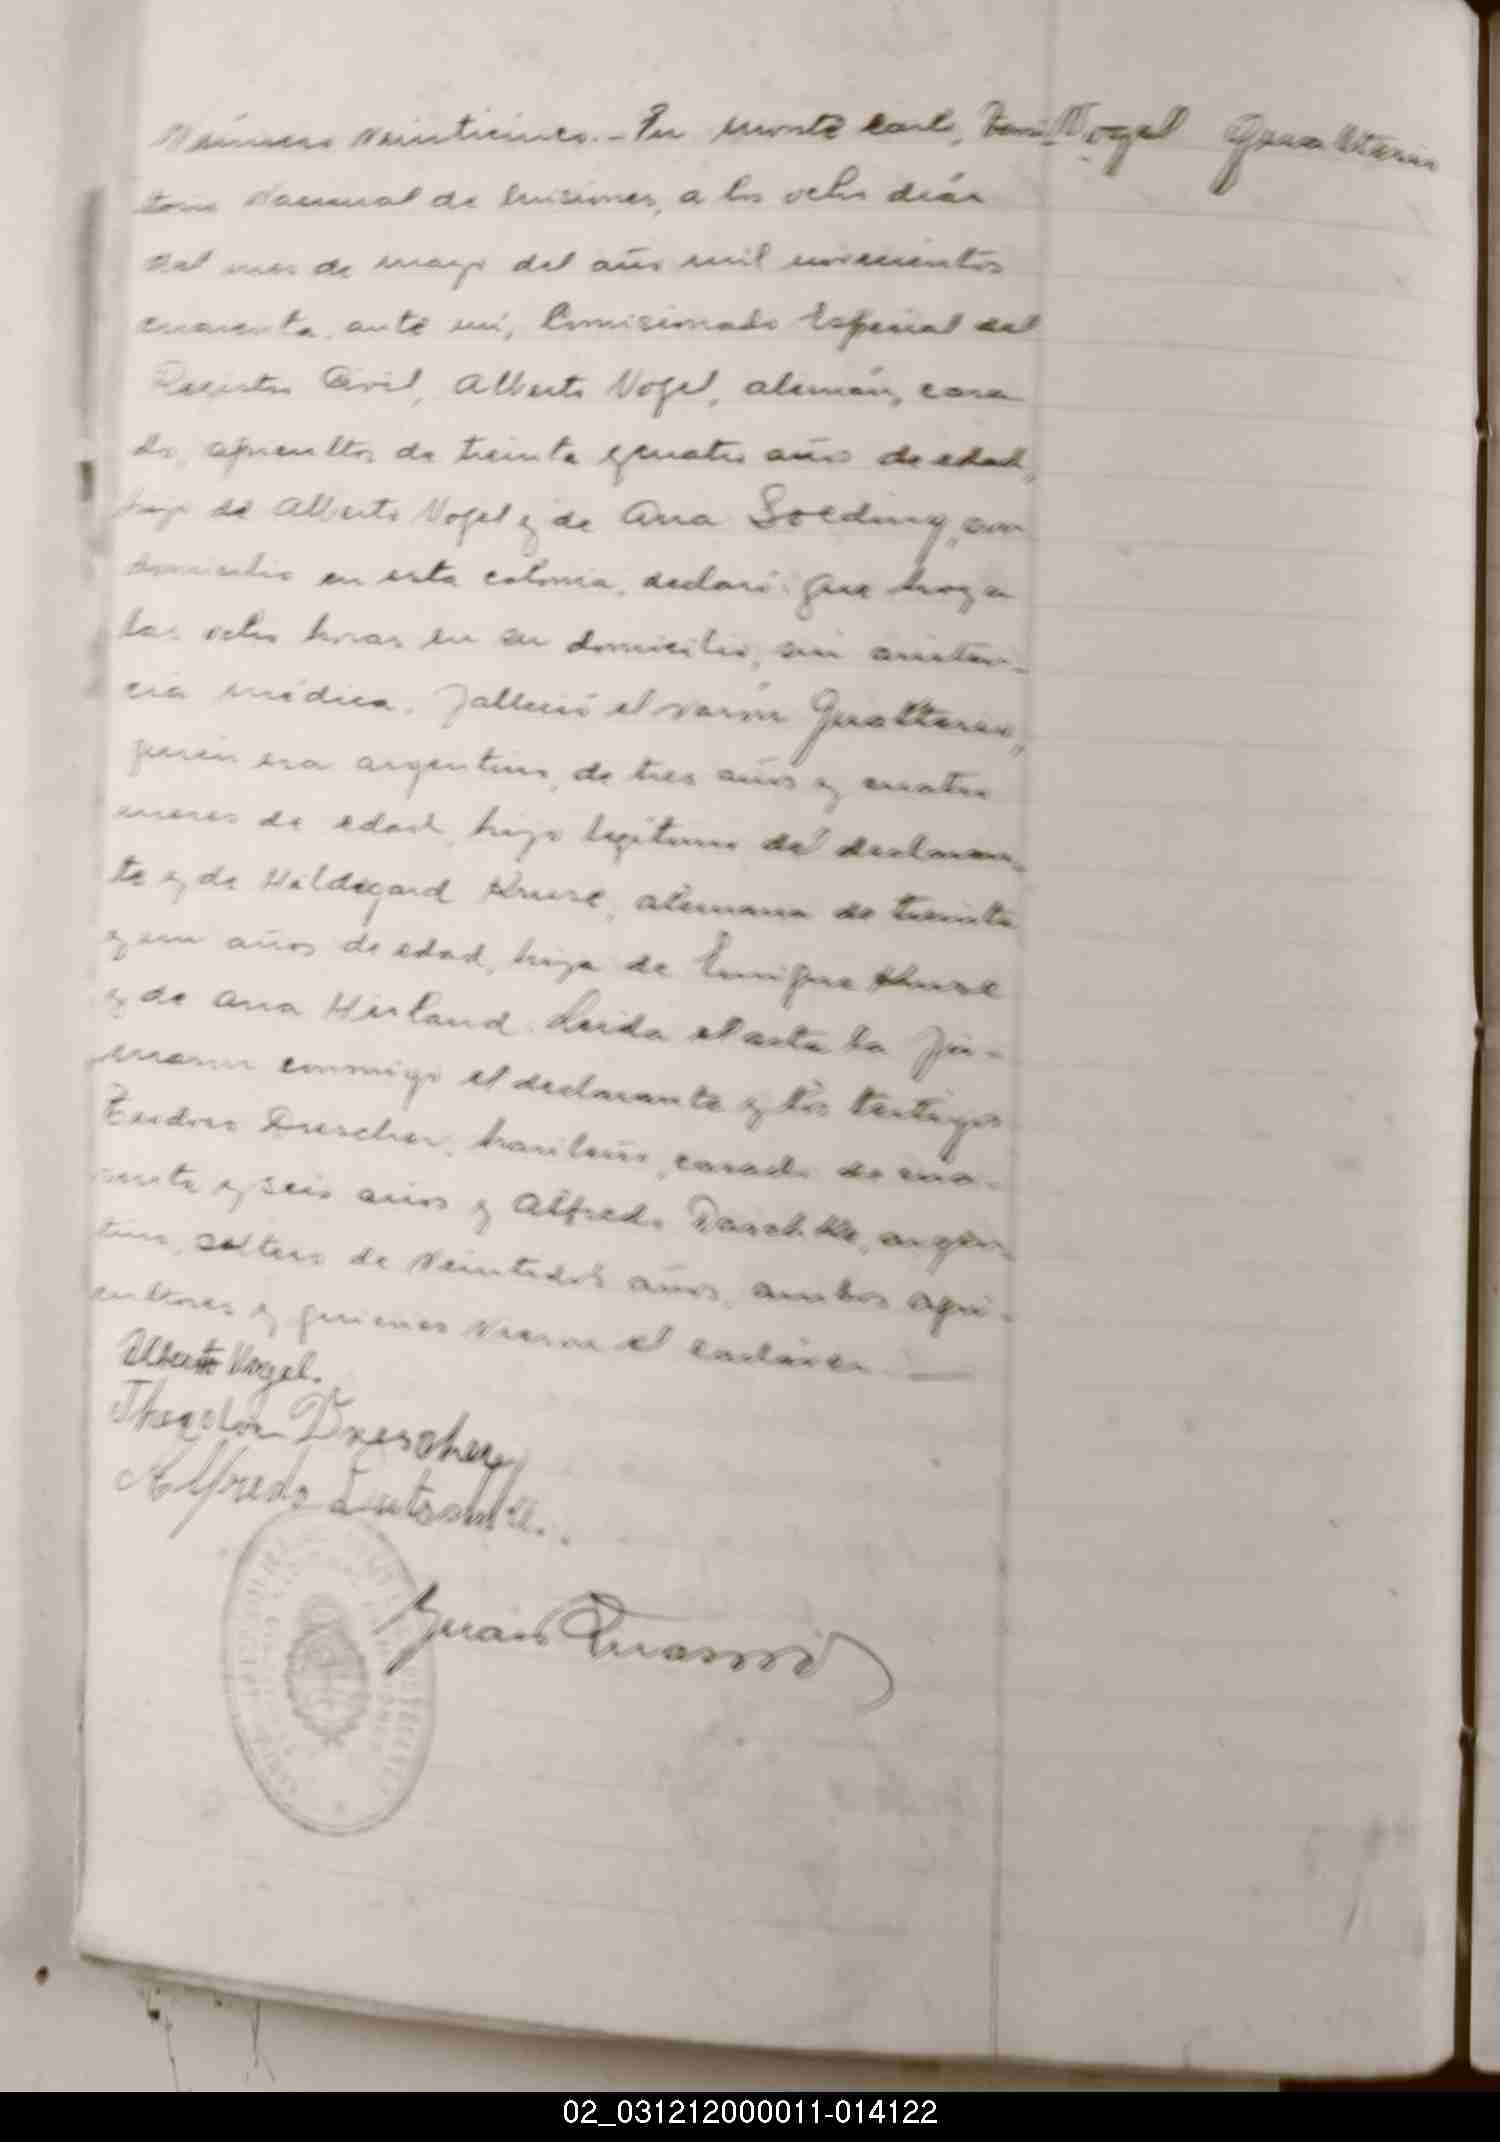 Número veinticinco.- En Monte Carlo, Terri- Vogel Gualterio
torio Nacional de Misiones, a los ocho días
del mes de mayo del año mil novecientos
cuarenta, ante mí, Comisionado Especial del
Registro Civil, Alberto Vogel, alemán, casa
do, agricultor de treinta y cuatro años de edad,
hijo de Alberto Vogel y de Ana Soeding, con
domicilio en esta colonia, declaró: Que hoy a
las ocho horas en su domicilio, sin asisten-
cia médica, falleció el varón Gualterio,
quien era argentino, de tres años y cuatro
meses de edad, hijo legítimo del declaran-
te y de Hildegard Kruse, alemana de treinta
y un años de edad, hija de Enrique Kruse
y de Ana Herland. Leida el acta la fir-
maron conmigo el declarante y los testigos
Teodoro Drescher, brasileño, casado de cua-
renta y seis años y Alfredo argen
tino, soltero de veintidos años, ambos agri-
cultores y quienes vieron el cadáver.
Alberto Vogel.
Theodor Drescher
Alfredo
Juan
02_031212000011-014122